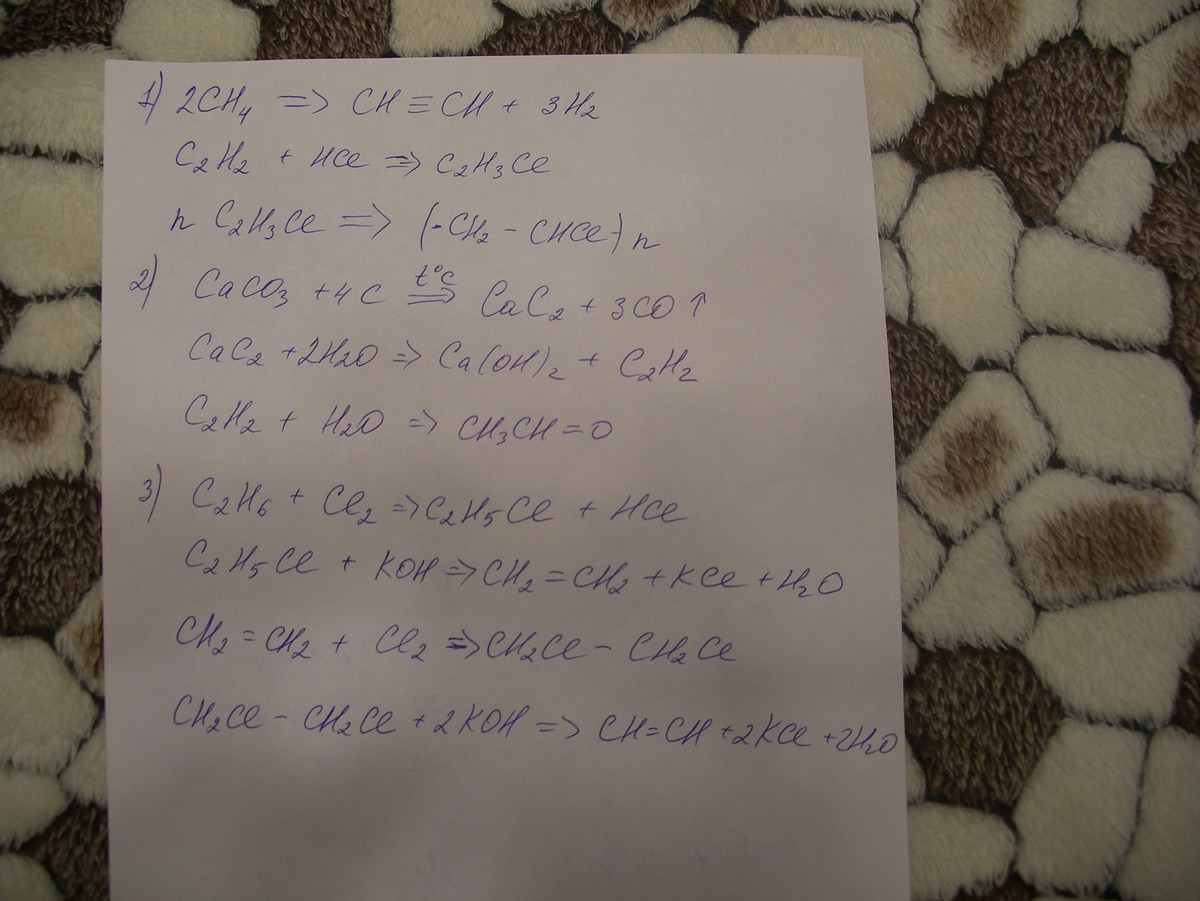 1) 2CH₄ => CH≡CH + 3H₂
C₂H₂ + HCl => C₂H₃Cl
n C₂H₃Cl => (-CH₂ - CHCl-)n
2) CaCO₃ + 4C t°C => CaC₂ + 3CO↑
CaC₂ + 2H₂O => Ca(OH)₂ + C₂H₂
C₂H₂ + H₂O => CH₃CH=O
3) C₂H₆ + Cl₂ => C₂H₅Cl + HCl
C₂H₅Cl + KOH => CH₂=CH₂ + KCl + H₂O
CH₂=CH₂ + Cl₂ => CH₂Cl - CH₂Cl
CH₂Cl - CH₂Cl + 2KOH => CH=CH + 2KCl + 2H₂O